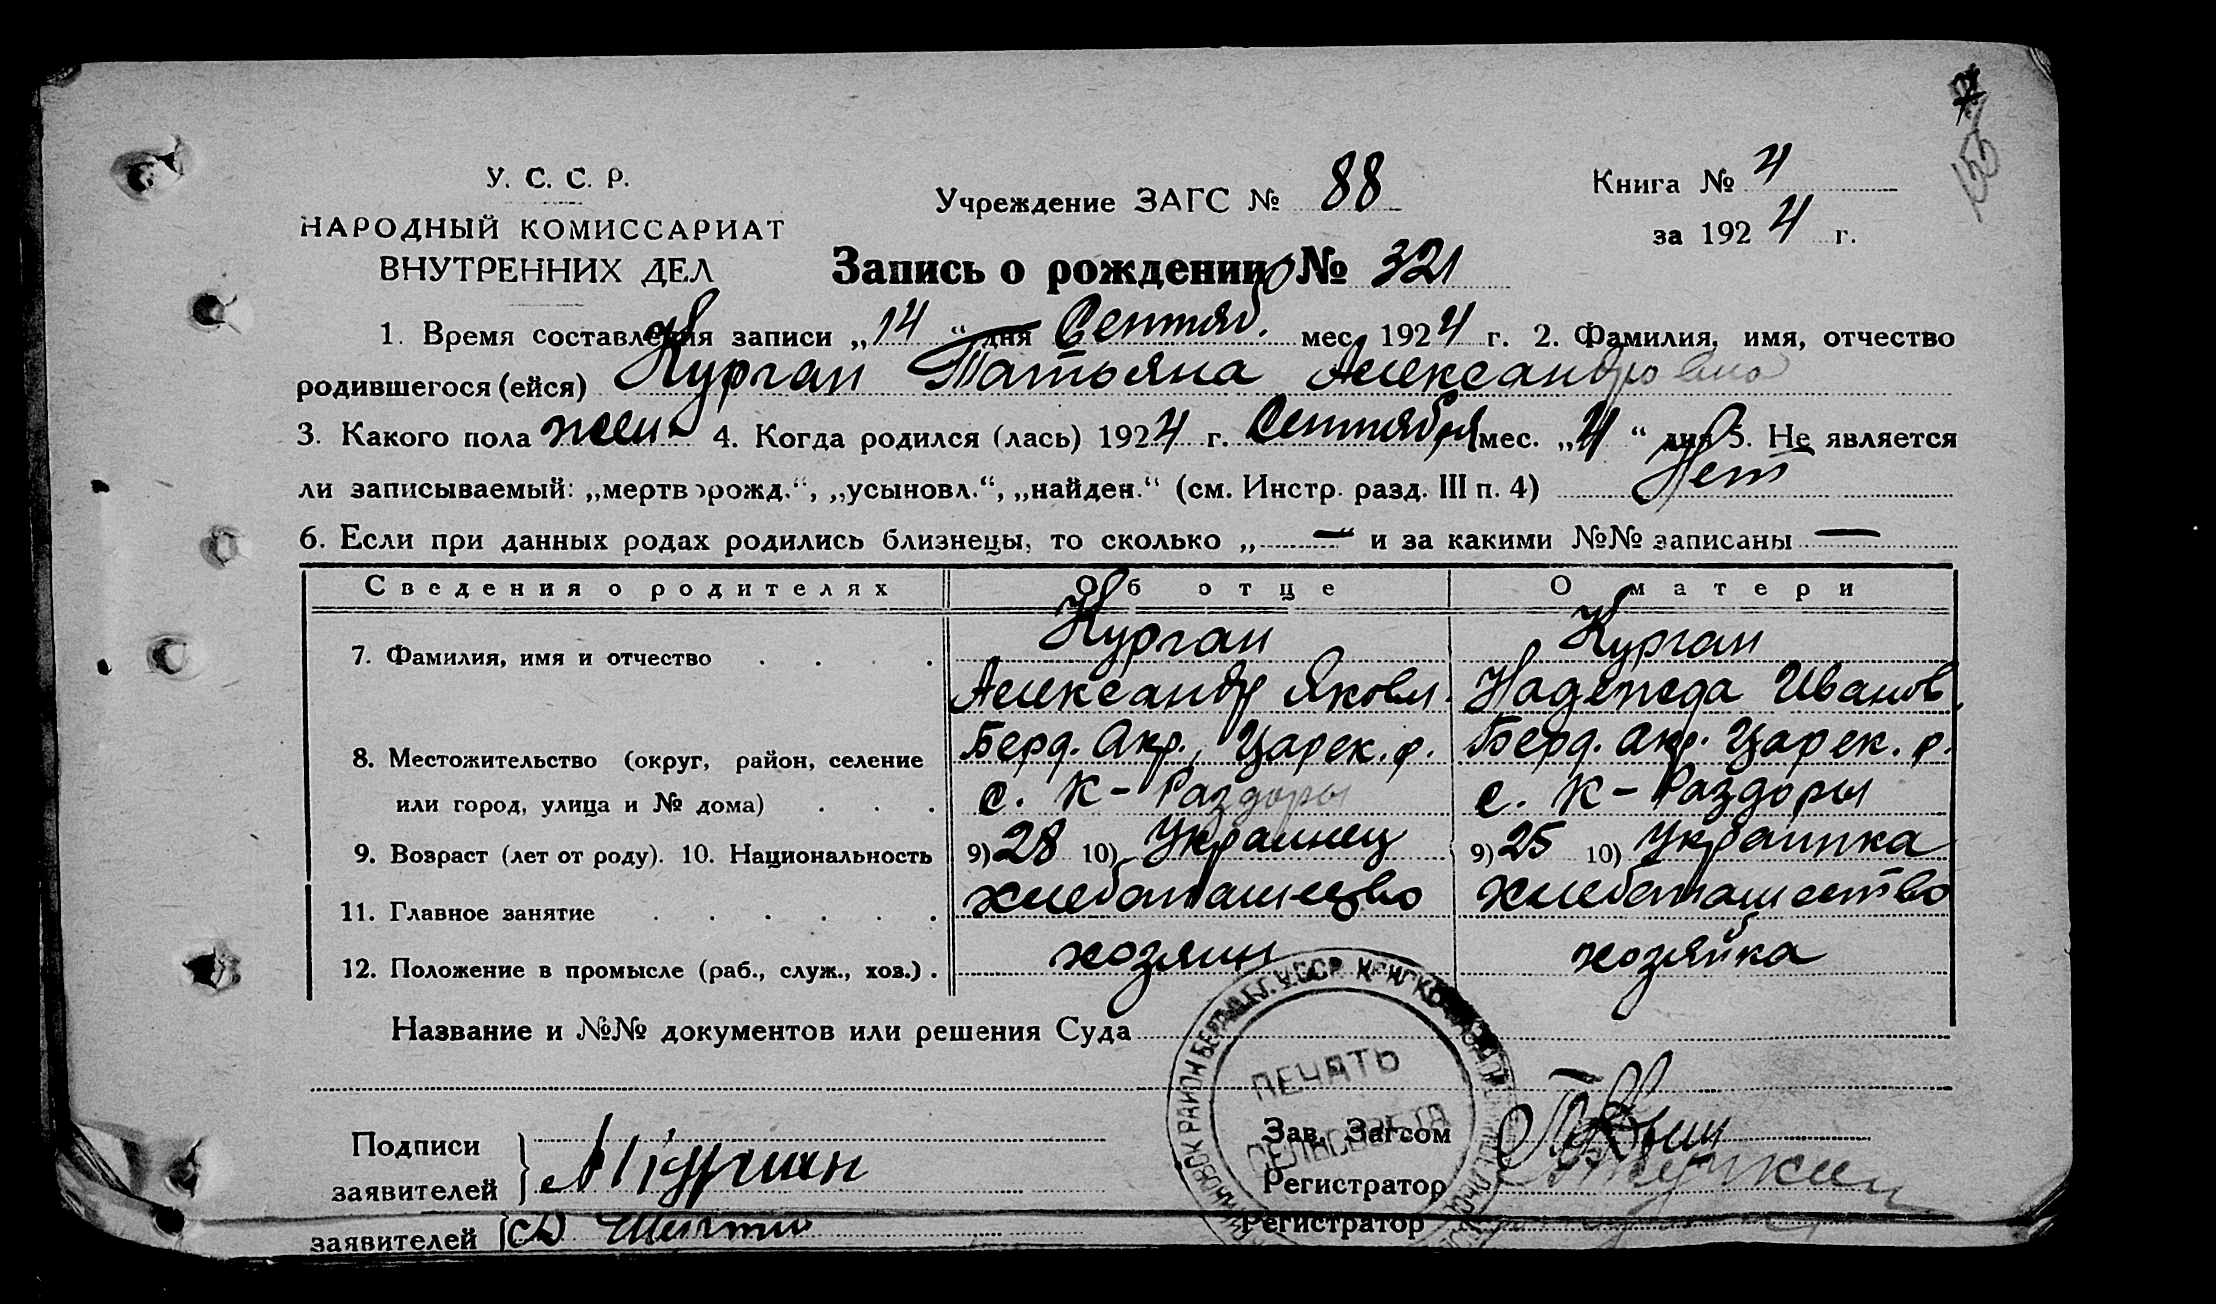 У. С. С. Р.
НАРОДНЫЙ КОМИССАРИАТ
ВНУТРЕННИХ ДЕЛ
Учреждение ЗАГС № 88
Книга № 4
за 1924 г.
Запись о рождении № 321
1. Время составления записи „14“ дня Сентяб. мес. 1924 г. 2. Фамилия, имя, отчество
родившегося (ейся) Курган Татьяна Александровна
3. Какого пола жен 4. Когда родился (лась) 1924 г. Сентября мес. „4“ дня 5. Не является
ли записываемый: „мертворожд.“, „усыновл.“, „найден.“ (см. Инстр. разд. III п. 4) Нет
6. Если при данных родах родились близнецы, то сколько „—“ и за какими №№ записаны —
Сведения о родителях Об отце О матери
7. Фамилия, имя и отчество . . . . Курган Курган
Александр Яковл. Надежда Иванов.
8. Местожительство (округ, район, селение Берд. Окр., Царек. р. Берд. Окр. Царек. р.
или город, улица и № дома) . . . с. К-Раздоры с. К-Раздоры
9. Возраст (лет от роду). 10. Национальность 9) 28 10) Украинец 9) 25 10) Украинка
11. Главное занятие . . . . . . хлебопашество хлебопашество
12. Положение в промысле (раб., служ., хоз.) . хозяин хозяйка
Название и №№ документов или решения Суда
ПЕЧАТЬ
СЕЛЬСОВЕТА
Подписи
заявителей
Зав. Загсом
Регистратор
заявителей
Регистратор